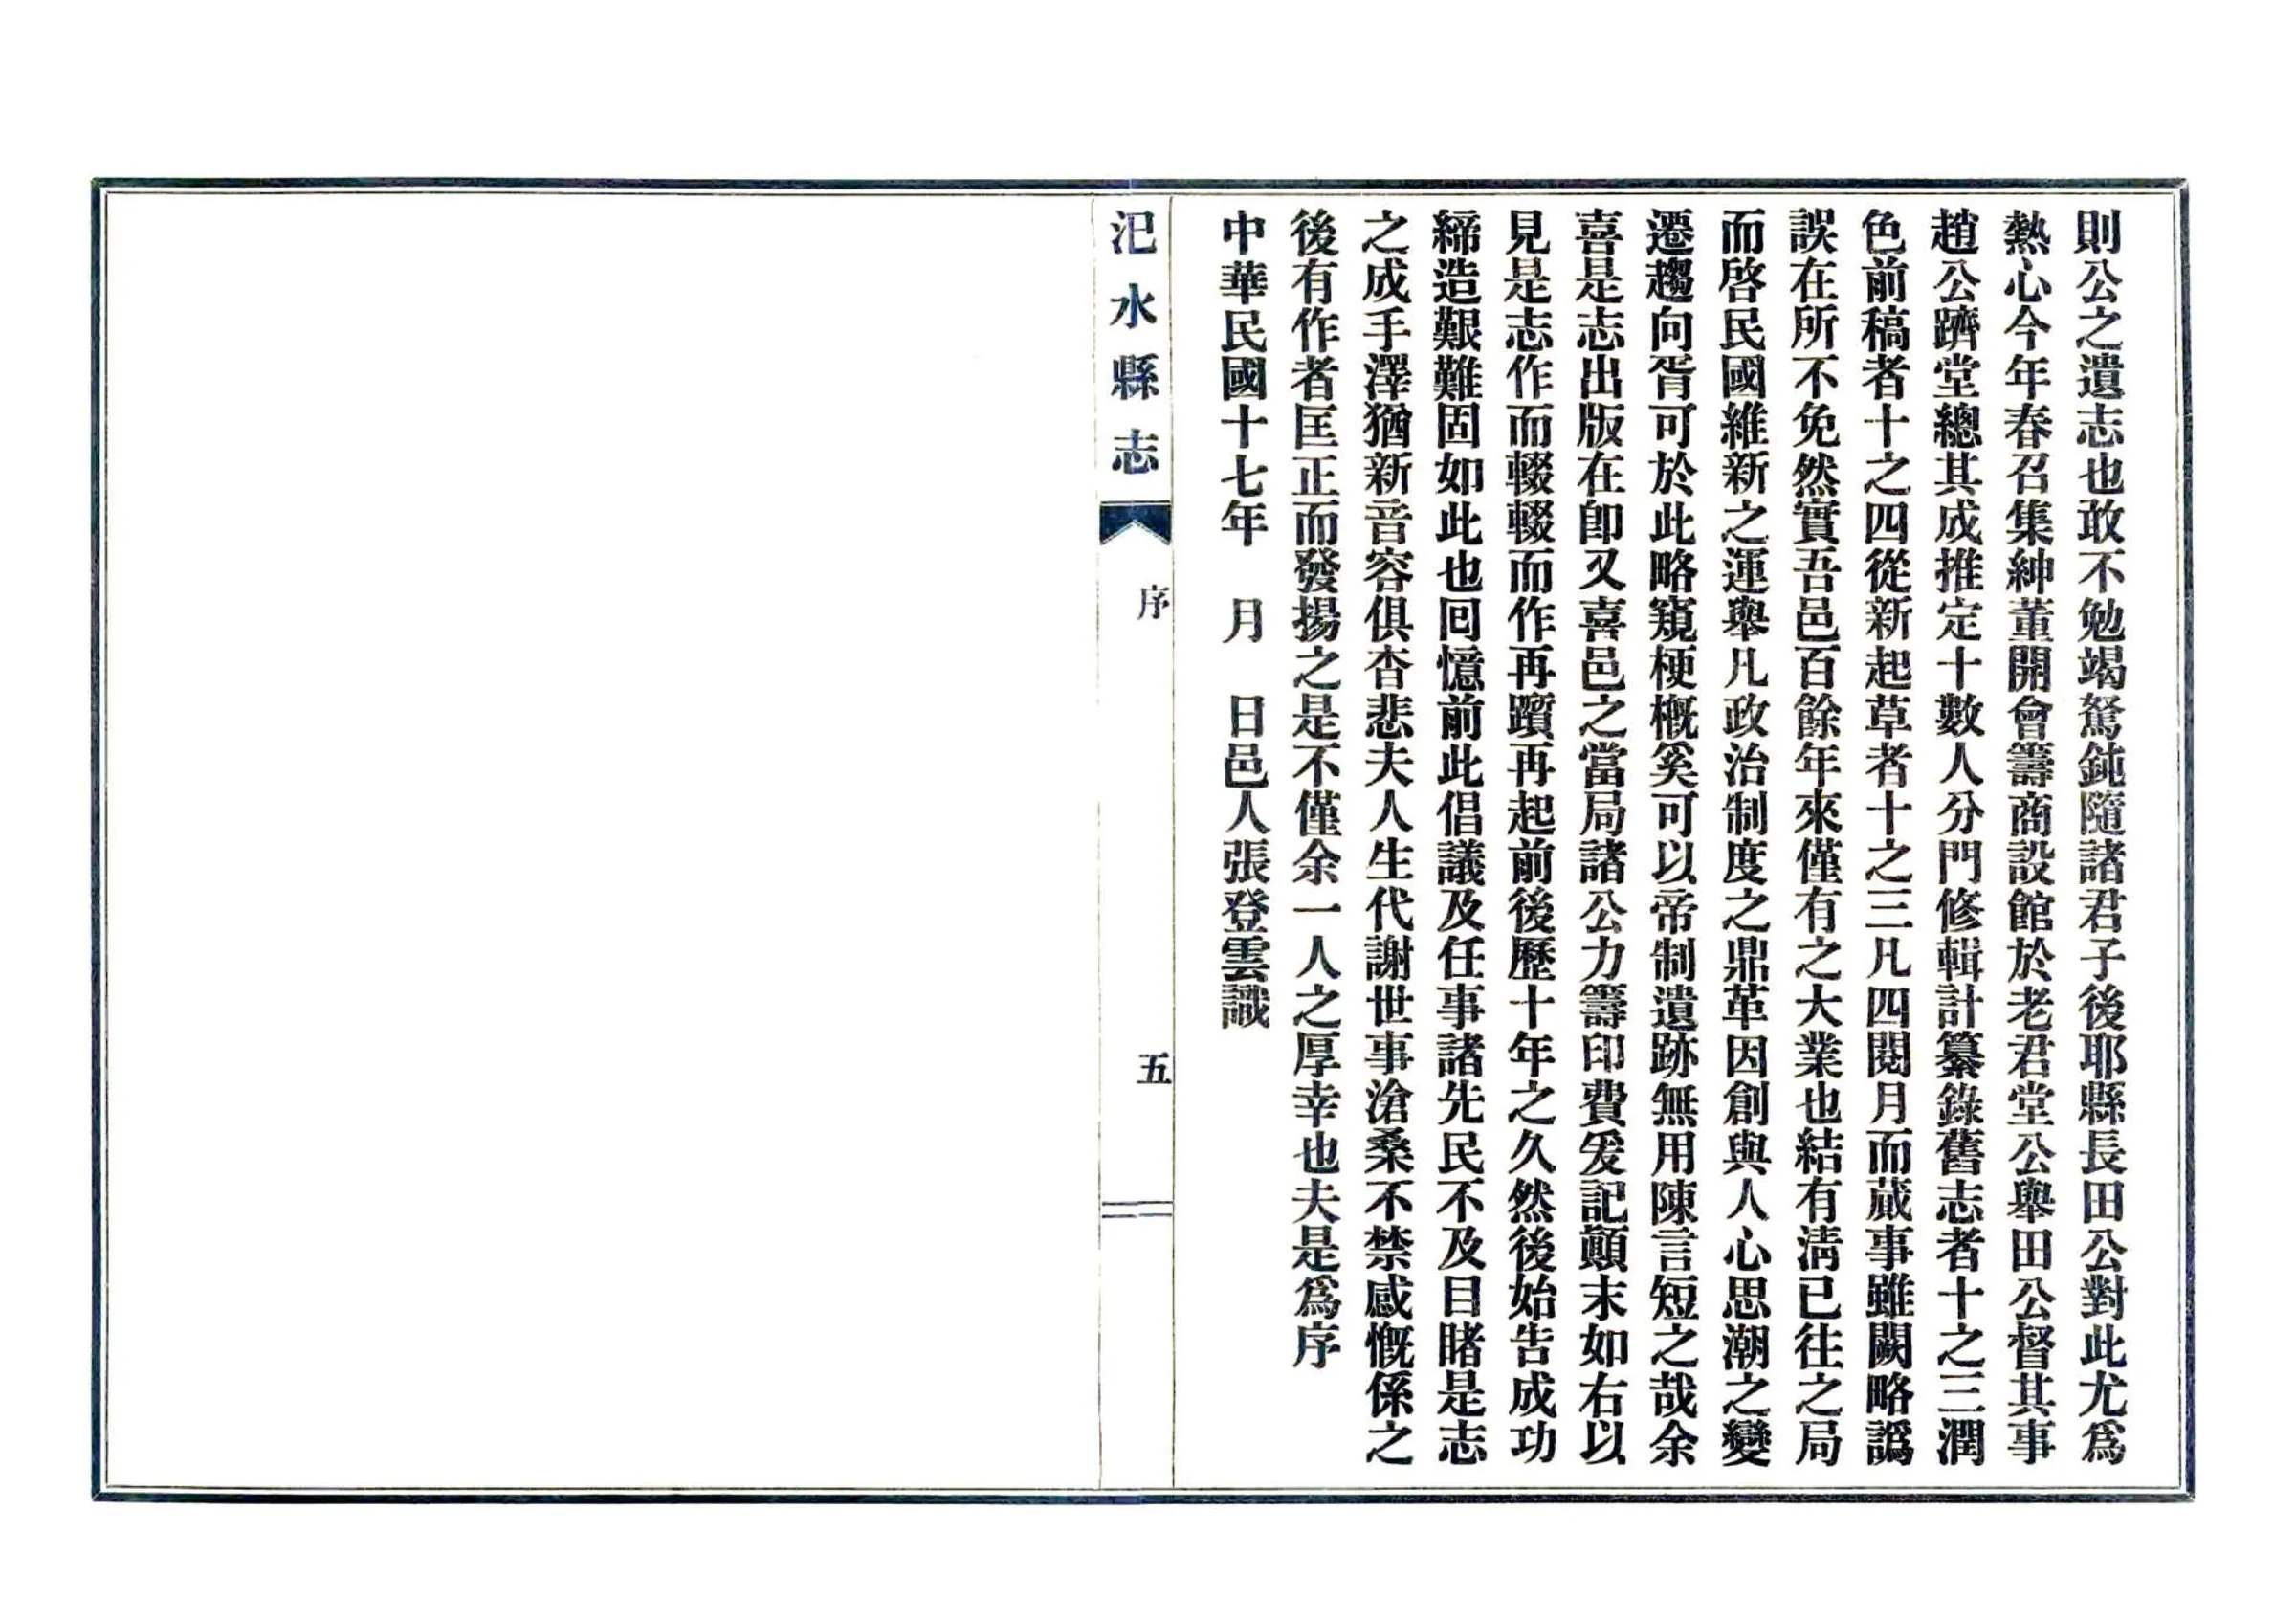 則公之遺志也敢不勉竭駑鈍隨諸君子後耶縣長田公對此尤爲
熱心今年春召集紳董開會籌商設館於老君堂公舉田公督其事
趙公躋堂總其成推定十數人分門修輯計纂錄舊志者十之三潤
色前稿者十之四從新起草者十之三凡四閱月而蕆事雖闕略譌
誤在所不免然實吾邑百餘年來僅有之大業也結有淸已往之局
而啓民國維新之運舉凡政治制度之鼎革因創與人心思潮之變
遷趨向胥可於此略窺梗槪奚可以帝制遺跡無用陳言短之哉余
喜是志出版在卽又喜邑之當局諸公力籌印費爰記顚末如右以
見是志作而輟輟而作再躓再起前後歷十年之久然後始告成功
締造艱難固如此也囘憶前此倡議及任事諸先民不及目睹是志
之成手澤猶新音容俱杳悲夫人生代謝世事滄桑不禁感慨係之
後有作者匡正而發揚之是不僅余一人之厚幸也夫是爲序
中華民國十七年　月　日邑人張登雲識
汜水縣志　序　五